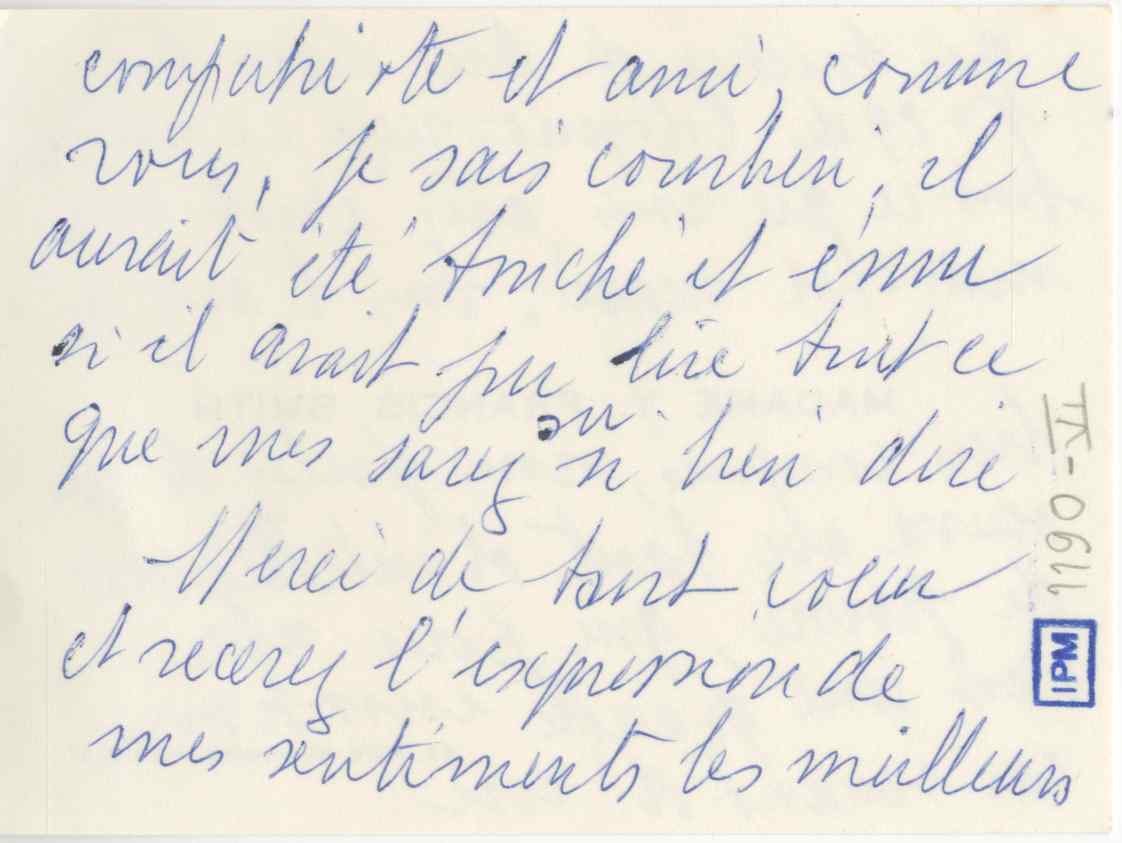 compatriote et ami, comme
vous, je sais combien, il
aurait été touché et ému
si il avait pu lire tout ce
que vous savez su si bien dire
Merci de tout coeur
et recevez l'expression de
mes sentiments les meilleurs
IPM 1190-